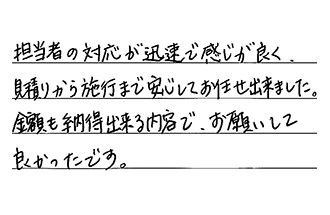 担当者の対応が迅速で感じが良く、
見積りから施行まで安心してお任せ出来ました。
金額も納得出来る内容で、お願いして
良かったです。